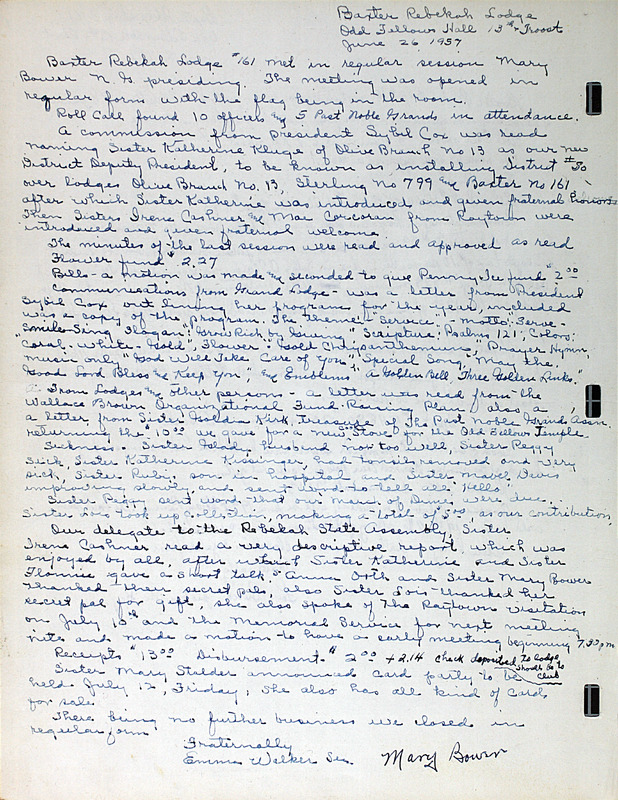 Baxter Rebekah Lodge
Odd Fellows Hall 13th & Troost
June 26 1957
Baxter Rebekah Lodge #161 met in regular session Mary
Bower N. G. presiding. The meeting was opened in
regular form with the flag being in the room.
Roll Call found 10 officers & 5 Past Noble Grands in attendance.
A commission from President Sybil Cox was read
naming Sister Katherine Kluge of Olive Branch No 13 as our new
District Deputy President, to be known as installing District #30
over lodges Olive Branch No. 13, Sterling No 799 & Baxter No 161
after which Sister Katherine was introduced and given fraternal honors
Then Sisters Irene Cashner & Mae Corcoran from Raytown were
introduced and given fraternal welcome
The minutes of the last session were read and approved as read
Flower fund $2.27
Bills - a motion was made & seconded to give Penny Ice fund $2.00
Communications from Grand Lodge - was a letter from President
Sybil Cox out lining her programs for the year, included
was a copy of the program The Theme "Service" Motto "Serve-
Smile-Sing" Slogan: "Grow Rich by Giving" Scripture; Psalms 121, Colors:
Coral - White - Gold", Flower "Gold Chrysanthemum", Prayer Hymn,
music only "God Will Take Care of You", Special Song, "May the
Good Lord Bless & Keep You," & Emblems "A Golden Bell, Three Golden Links."
From Lodges & other persons - a letter was read from the
Wallace Brown Organizational Fund-Raising Plan also a
a letter from Sister Golden Kirk, treasure of The Past Noble Grands Assn.
returning the $10.00 we gave for a new Stove for the Odd Fellows Temple
Sickness - Sister Gladys husband not too well, Sister Peggy
sick, Sister Katherine Kissinger, had tonsils removed and very
sick, Sister Rubie son in hospital and Sister Davis
improving slowly and sent word to tell all "Hello"
Sister Peggy sent word that our March of Dimes were due.
Sister Lois took up collection, making a total of $5.00, as our contribution,
Our delegate to the Rebekah State Assembly, Sister
Irene Cashner read a very descriptive report, which was
enjoyed by all, after which Sister Katherine and Sister
Flonnie gave a short talk. Anna Orth and Sister Mary Bower
thanked their secret pals, also Sister Lois thanked her
secret pal for gift, she also spoke of The Raytown visitation
on July 10th and the Memorial Service for next meeting
nite and made a motion to have a early meeting, beginning 7:30 pm
Receipts $13.00 Disbursement $2.00 + 2.14 check deposited to lodge
should be to
Sister Mary Stelder announced card party to be club
held July 12, Friday, she also has all kind of Cards
for sale.
There being no further business we closed in
regular form
Fraternally
Emma Walker Sec. Mary Bower